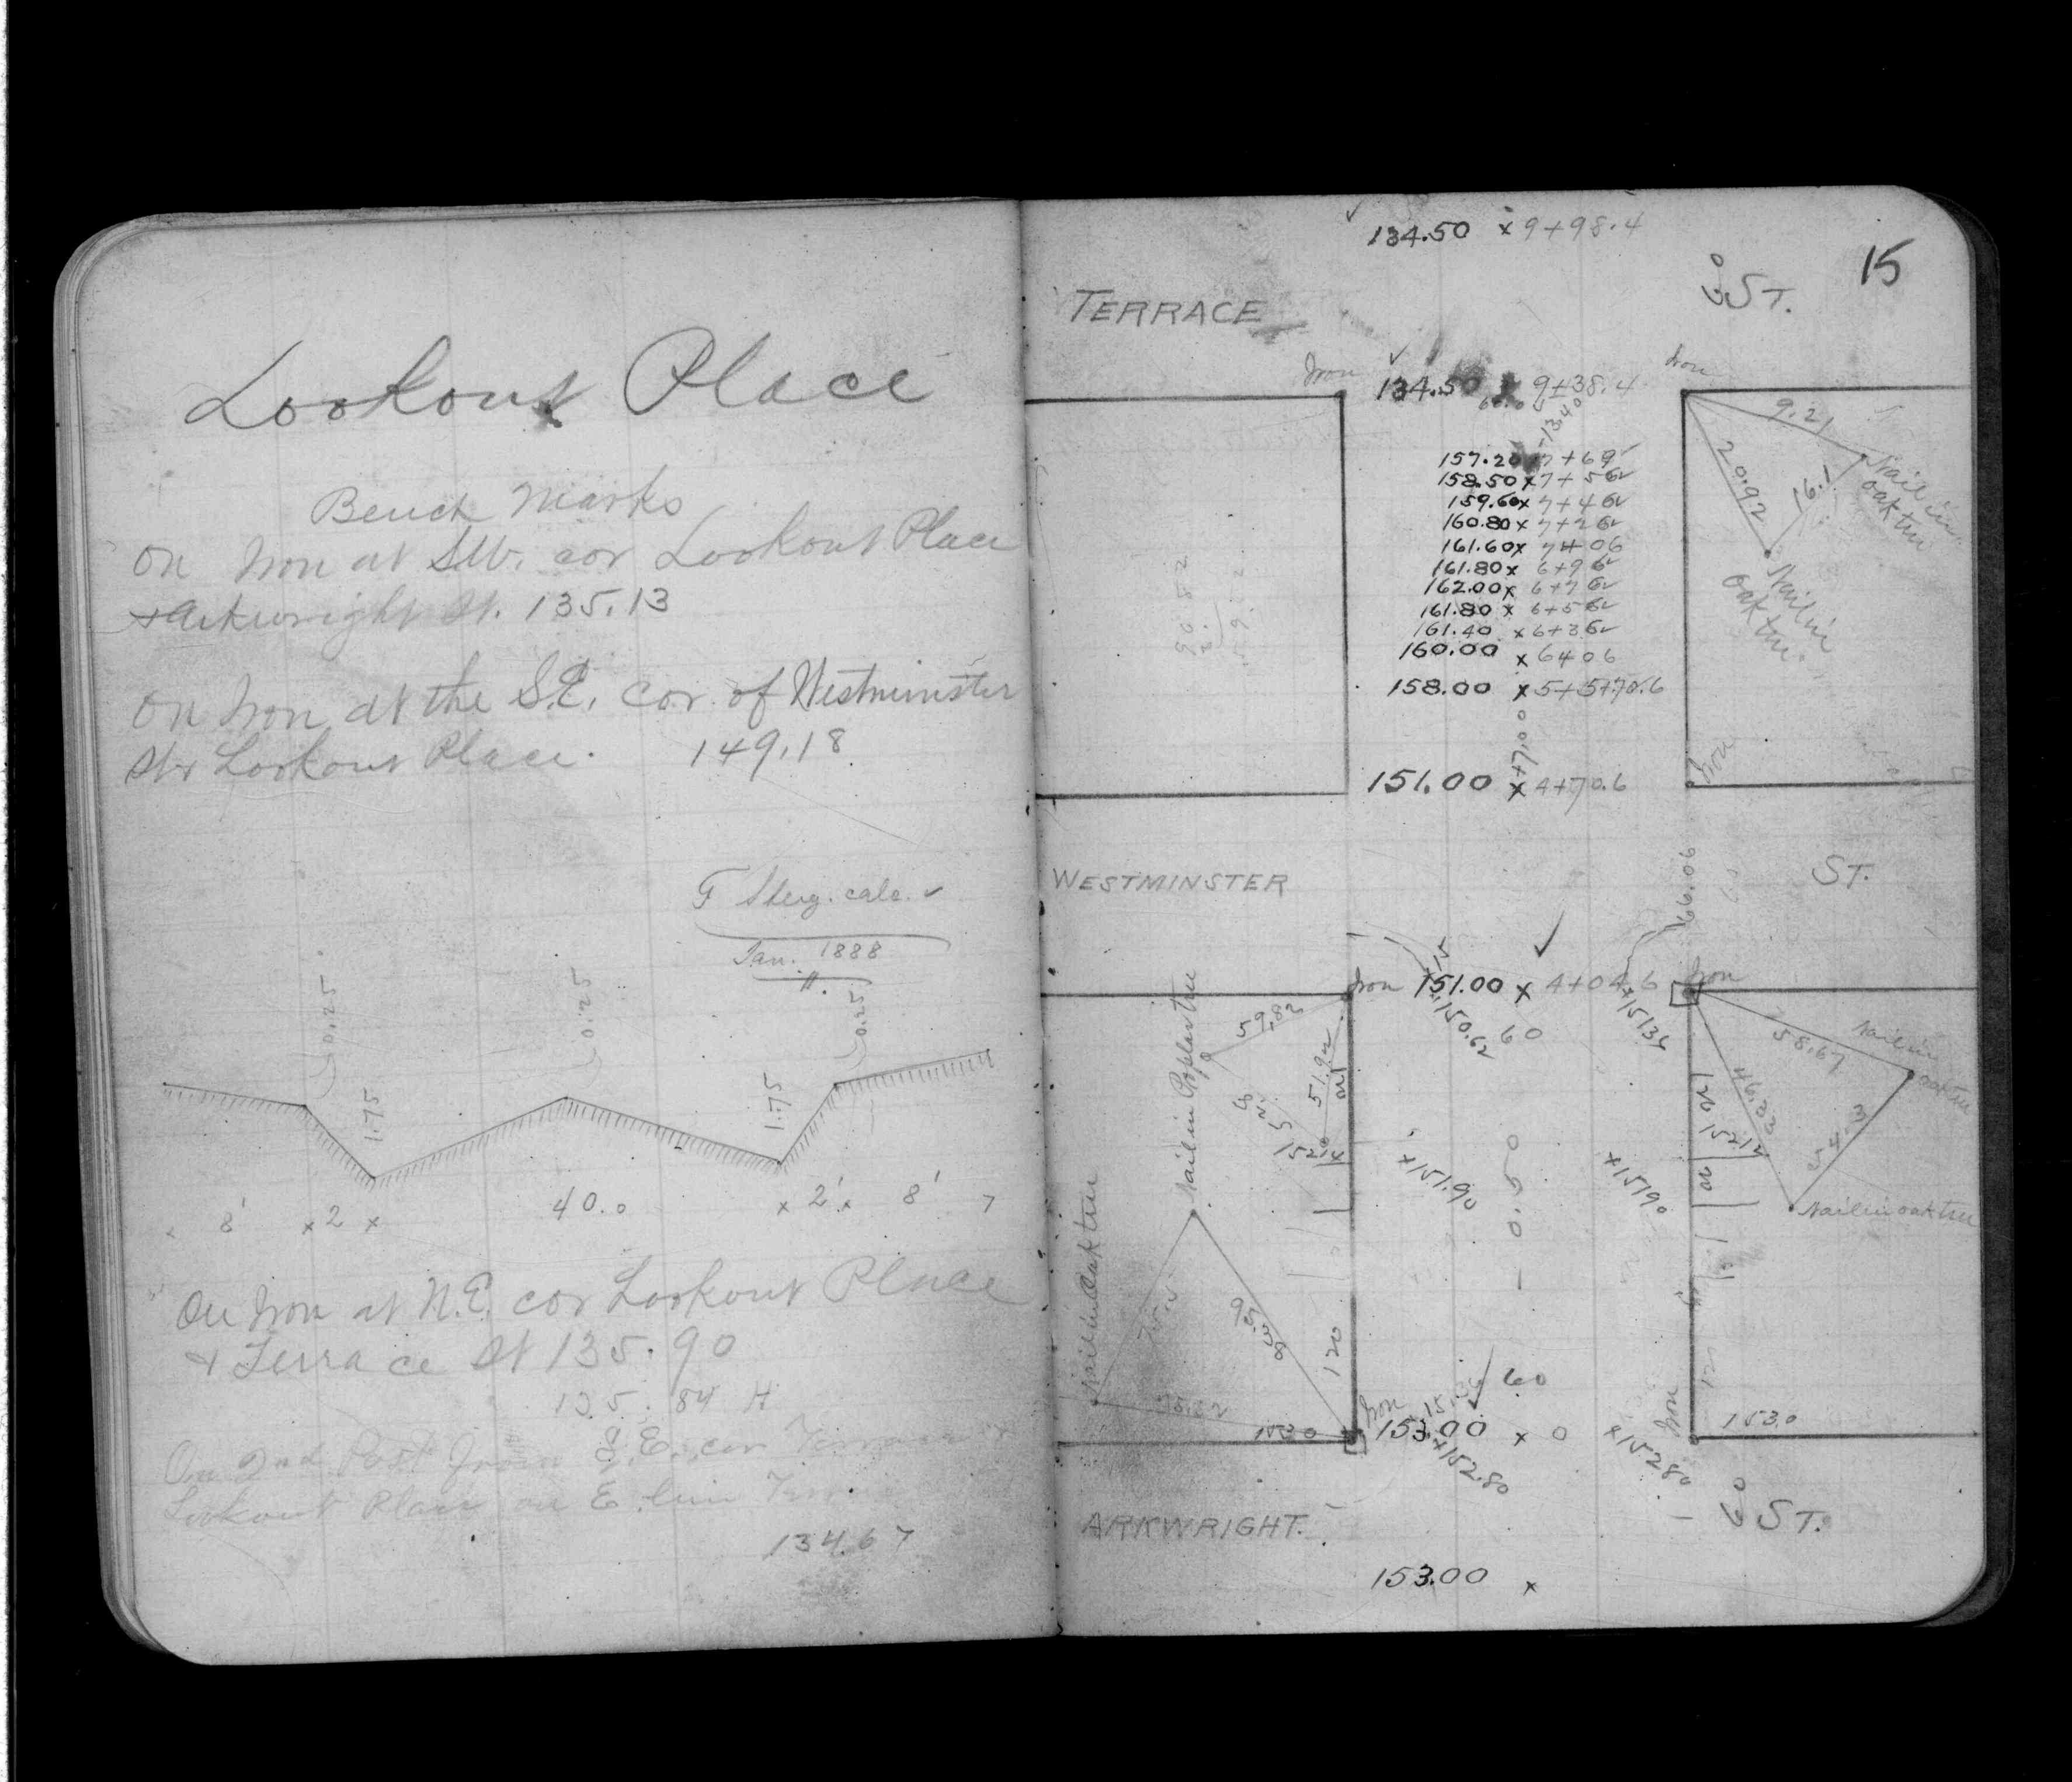 Lookout Place
Bench Marks
On Iron at S.W. cor Lookout Place
& Arkwright St. 135.13
On Iron at the S.E. cor. of Westminster
St & Lookout Place. 149.18
calc. ✓
Jan. 1888
0.25
0.25
0.25
1.75
1.75
8' x 2 x 40.0 x 2' x 8'
On Iron at N.E. cor Lookout Place
& Terrace St 135.90
135.84 H
On 2nd Post from S.E. cor Terrace &
Lookout Place on E. line Terrace
134.67
15
134.50 x 9+98.4
TERRACE
60 ST.
Iron
134.50 x 9+38.4
Iron
60.0
-13.40
157.20 x 7+69
158.50 x 7+56
159.60 x 7+46
160.80 x 7+26
161.60 x 7+06
161.80 x 6+96
162.00 x 6+76
161.80 x 6+56
161.40 x 6+36
160.00 x 6+06
158.00 x 5+70.6
+7.00
151.00 x 4+70.6
9.21
20.92
16.1
Nail in oak tree
Nail in oak tree
Iron
WESTMINSTER
ST.
66.06
Iron
151.00 x 4+04.6
Iron
+150.62
60
59.82
51.92
Nail in Poplar tree
152.14
+151.90
+151.90
- 0.50
58.67
46.
54.3
152.12
Nail in oak tree
Nail in oak tree
Nail in Oak tree
95.38
120
60
Iron
153.0
153.00 x 0
+152.80
+152.80
Iron
153.0
ARKWRIGHT.
60 ST.
153.00 x